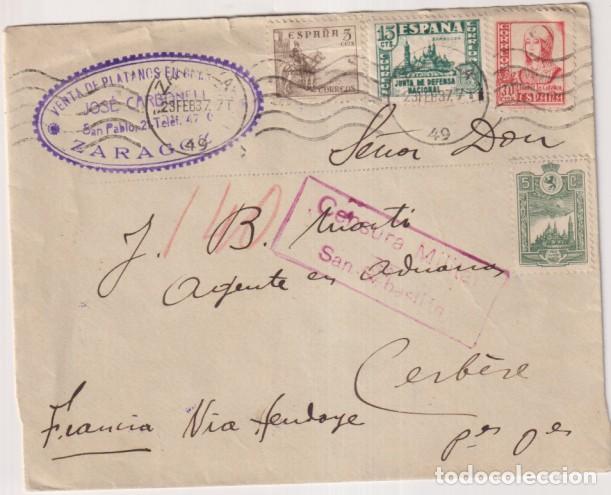 VENTA DE PLATANOS EN
JOSÉ CARBONELL
San Pablo, 2 Teléf. 47
ZARAGOZA
ESPAÑA
5 CTS
CORREOS
23 FEB 37. 7 T
49
ESPAÑA
15 CTS
ZARAGOZA
JUNTA DE DEFENSA
NACIONAL
23 FEB 37. 7 T
49
CORREOS
30
ESPAÑA
5 C
Señor Don
140
J. B. Monti
Agente en Aduanas
Censura Militar
San Sebastián
Cerbère
Francia Via Hendaye
Pes Oes
todocoleccion.net